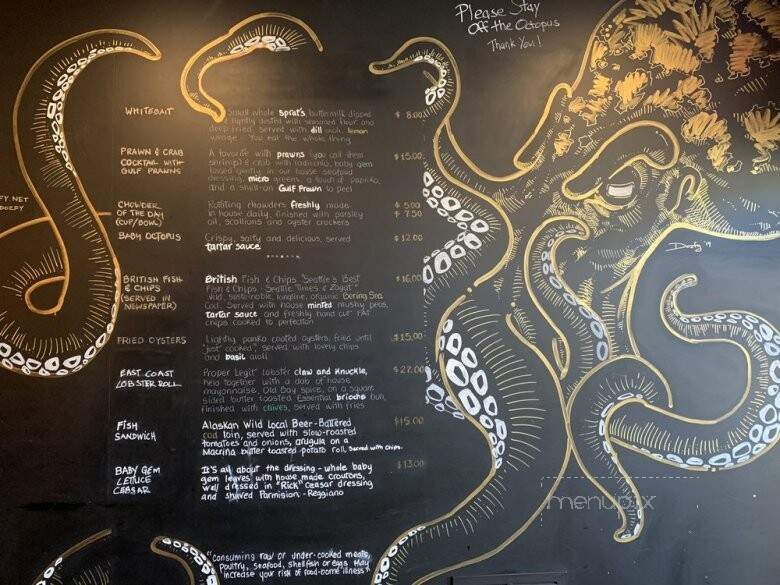 Please Stay
Off the Octopus
Thank You!
FY.NET
DOZFY
WHITEBAIT
Small whole sprat's buttermilk dipped
& lightly dusted with seasoned flour and
deep fried. Served with dill and lemon
You eat the whole thing
$ 8.00
PRAWN & CRAB
COCKTAIL WITH
GULF PRAWNS
A favorite with prawns (you call them
shrimp) & crab with radicchio, baby gem
tossed gently in our house seafood
dressing, micro greens, a touch of paprika,
and a shell-on Gulf Prawn to peel
$15.00
CHOWDER
OF THE DAY
(CUP/BOWL)
Rotating chowders freshly made
in house daily, finished with parsley
oil, scallions and oyster crackers
$ 5.00
$ 7.50
BABY OCTOPUS
Crispy, salty and delicious, served
tartar sauce
$12.00
BRITISH FISH
& CHIPS
(SERVED IN
NEWSPAPER)
British Fish & Chips "Seattle's Best
Fish & Chips" Seattle Times & Zagat
Wild, sustainable, longline, organic Bering Sea
Cod. Served with house minted mushy peas,
tartar sauce and freshly hand cut FAT
chips cooked to perfection
$16.00
FRIED OYSTERS
Lightly panko coated oysters, fried until
"just cooked", served with lovely chips
and basil aioli
$15.00
EAST COAST
LOBSTER ROLL
Proper Legit lobster claw and knuckle,
held together with a dab of house
mayonnaise, Old Bay spice, on a square
sided butter toasted Essential brioche bun,
finished with chives, served with fries
$27.00
FISH
SANDWICH
Alaskan Wild Local Beer-Battered
cod loin, served with slow-roasted
tomatoes and onions, arugula on a
Macrina butter toasted potato roll, Served with chips.
$15.00
BABY GEM
LETTUCE
CEASAR
It's all about the dressing - whole baby
gem leaves with house made croutons,
well dressed in "Rick" Ceasar dressing
and shaved Parmision-Reggiano
$13.00
"Consuming raw or under-cooked meats,
Poultry, seafood, shellfish or eggs may
increase your risk of food-borne illness"
Dozfy '19
menupix